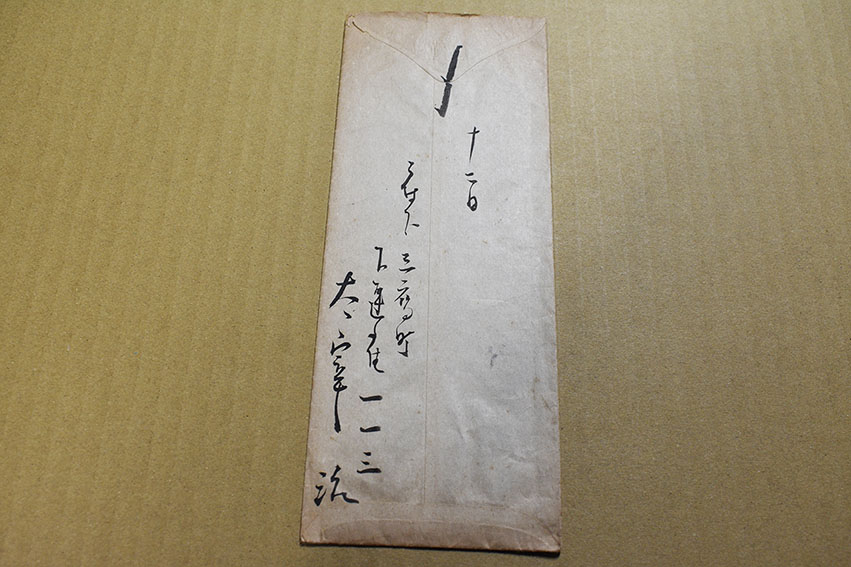 十二日
府下三鷹町
下連雀一一三
太宰治